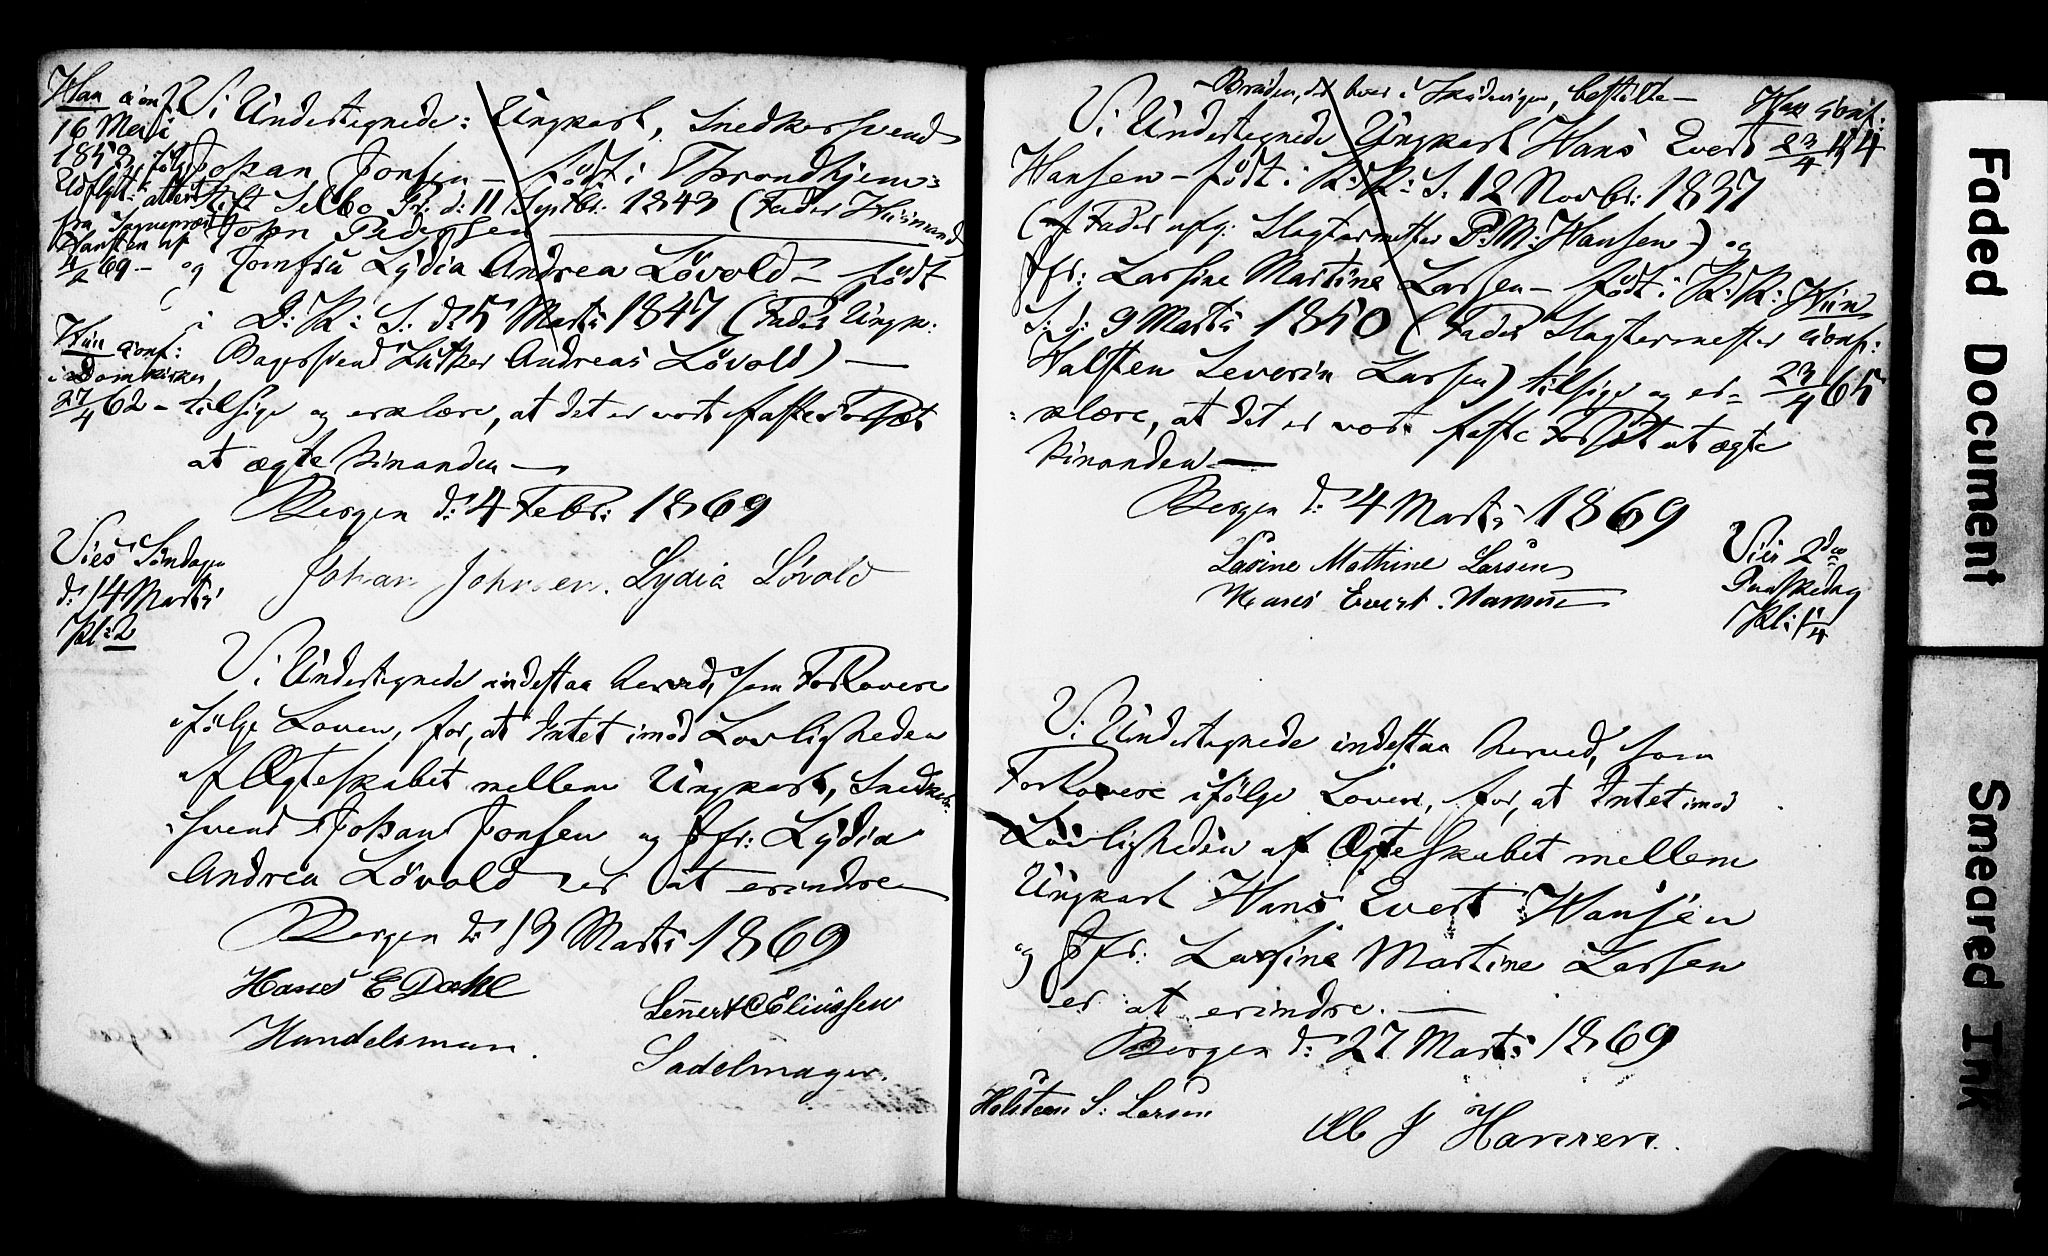 Han conf.
16 Mai
1858, ifølg
Udflytt: attest
fra Sognepræst
Hansteen af
4/2 69 -
Vi Undertegnede: Ungkarl, Snedkersvend
Johan Jonsen - født i Throndhjems
Stift Selbo Pr. d: 11 Septbr: 1843 (Fader Huusmand
John Pedersen
og Jomfru Lydia Andrea Lövold - født
i D: K: S: d: 5 Marts 1847 (Fader Ungk:
Bagersvend Lüther Andreas Lövold) -
tilsige og erklære, at det er vort faste Forsæt
at ægte hinanden -
Bergen d: 4 Febr: 1869
Johan Johnsen. Lydia Lövold
Hün conf:
i Domkirken
27/4 62 -
Vies Søndagen
d: 14 Marts
Kl: 2
Vi Undertegnede indestaa herved, som Forlovere
ifølge Loven, for, at Intet imod Lovligheden
af Ægteskabet mellem Ungkarl, Snedker-
svend Johan Jonsen og Jfr: Lydia
Andrea Lövold er at erindre
Bergen d: 13 Marts 1869
Hans E Dahl
Handelsman.
Lennert C Eliassen
Sadelmager.
- Bruden, der boer i Skudevigen, bestilte -
Vi Undertegnede Ungkarl Hans Evert
Hansen - født i K: K: S. 12 Novbr: 1837
(Fader afg: Slagtermester P. M: Hansen) og
Jfr: Larsine Martine Larsen - født i K: K:
S: d: 9 Marts 1850 (Fader Slagtermester
Halsten Severin Larsen) tilsige og er-
klære, at det er vort faste Forsæt at ægte
hinanden -
Bergen d: 4 Marts 1869
Lasine Mathine Larsen
Hans Evert Hansen
Han conf:
23/4 54
Hün
conf:
23/4 65
Vies 2den
Paaskedag
Kl: 1/4
Vi Undertegnede indestaa herved, som
Forlovere ifølge Loven, for, at Intet imod
Lovligheden af Ægteskabet mellem
Ungkarl Hans Evert Hansen
og Jfr: Larsine Martine Larsen
er at erindre. -
Bergen d: 27 Marts 1869
Holsteen S: Larsen
Ole J Hansen.
Faded Document
Smeared Ink